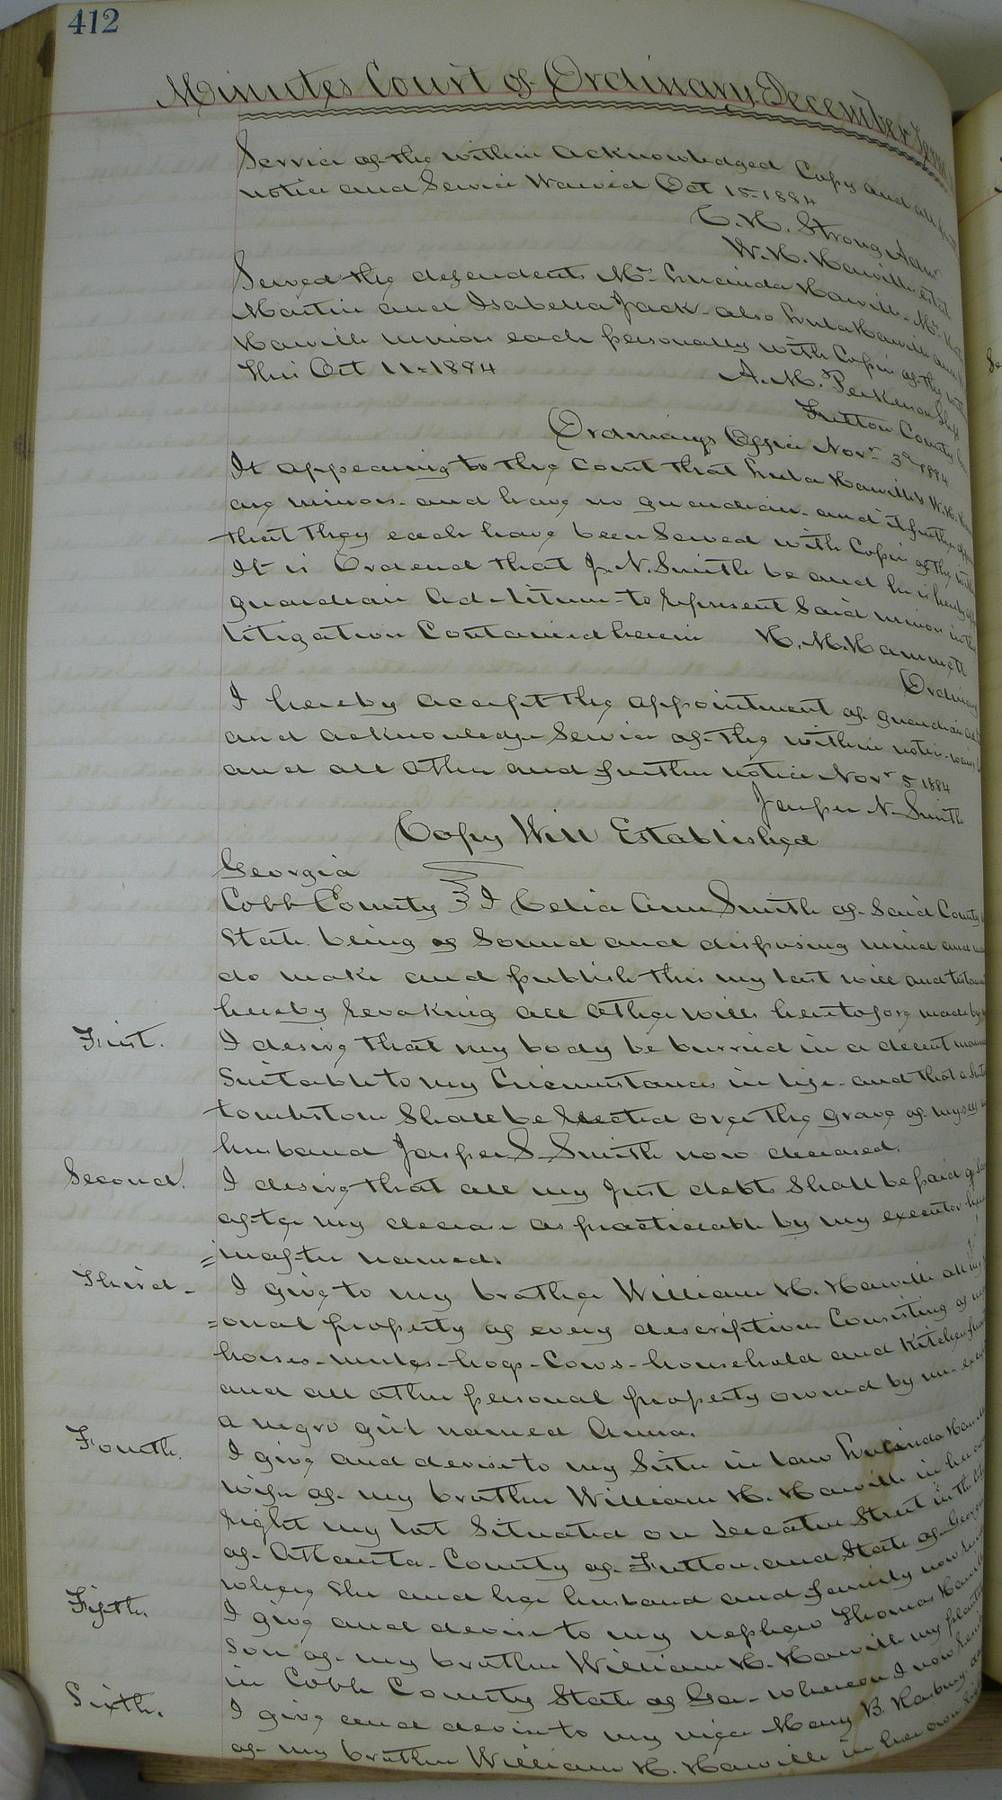 412
Minutes Court of Ordinary December Term
Service of the within acknowledged Copy and all
notice and Service Waived Oct 15- 1884
C. H. Strong Admr
W. H. Hawill
Served the defendents Mrs Lucinda Hawill - Mrs
Martin and Isabella Jack - also Lula Hawill and
Hawill minors each personally with Copies of the within
This Oct 11- 1884
A. M. Perkerson Shff
Fulton County
Ordinarys Office Novr 3d 1884
It appearing to the Court that Lula Hawill & W. H.
are minors - and have no guardian - and it further
that they each have been Served with Copies of the within
It is Ordered that J. N. Smith be and he is hereby
guardian ad-litum - to represent Said minors in the
litigation Contained herein
H. M. Hammett
Ordinary
I hereby accept the appointment of guardian ad
and acknowledge Service of the within notice -
and all other and further notice Novr 5 1884
Jasper N. Smith
Copy Will Established
Georgia
Cobb County } I Celia Ann Smith of Said County
State being of Sound and disposing mind and
do make and publish this my last will and
hereby revoking all other wills heretofore made by
First. I desire that my body be burried in a decent manner
Suitable to my Circumstances in life - and that a
tombstone Shall be Erected over the grave of myself
husband Jasper S. Smith now deceased.
Second. I desire that all my Just debts Shall be paid
after my decease as practicable by my executor
=inafter named.
Third - I give to my brother William H. Hawill all my
=onal property of every description Consisting of
horses - mules - hogs - Cows - household and Kitchen
and all other personal property owned by me
a negro girl named Anna.
Fourth. I give and devise to my Sister in law Lucinda
wife of my brother William H. Hawill in her
right my lot Situated on Decatur Street in the
of Atlanta - County of Fulton and State of Georgia
where She and her husband and family now
Fifth. I give and devise to my nephew Thomas
Son of my brother William H. Hawill my
in Cobb County State of Ga - whereon I now
Sixth. I give and devise to my niece Mary B.
of my brother William H. Hawill in her own